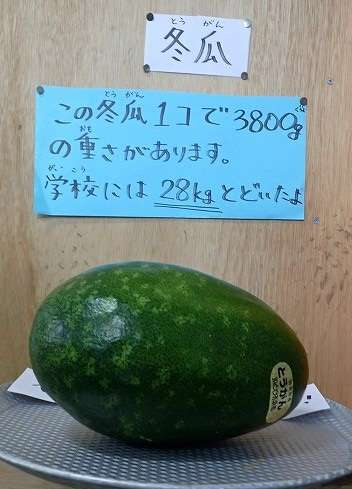 とう がん
冬瓜
とう がん
この冬瓜1コで3800g
ぐらむ
おも
の重さがあります。
がっ こう
学校には 28kgとどいたよ
とうがん